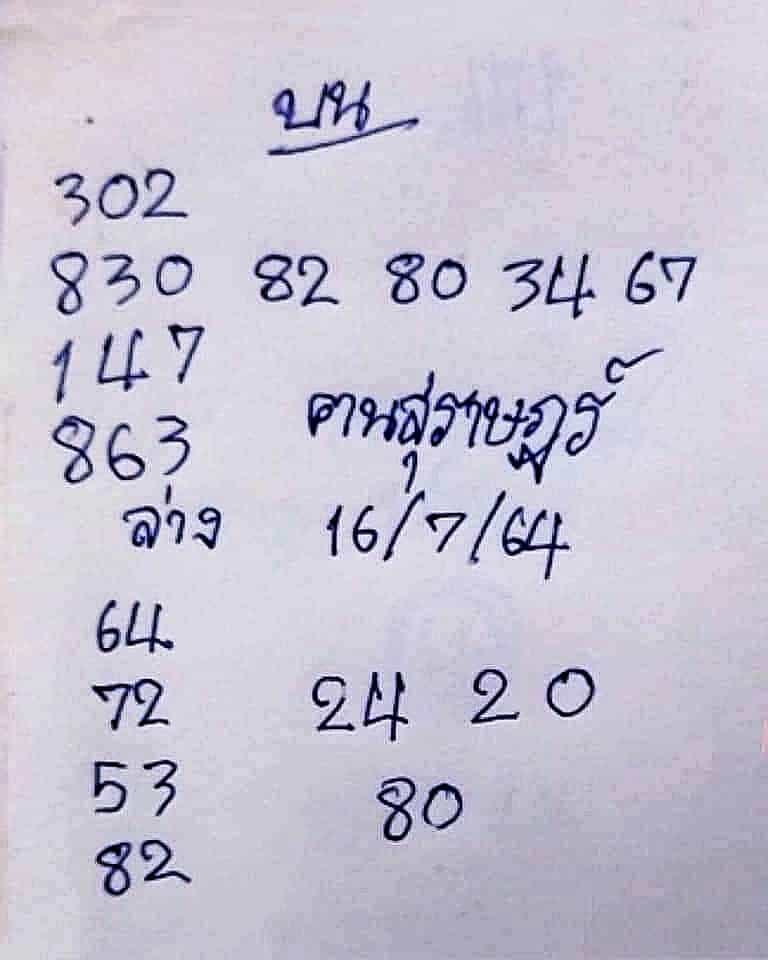 บน
302
830 82 80 34 67
147
863
คนสุราษฏร์
ล่าง 16/7/64
64
72 24 20
53 80
82